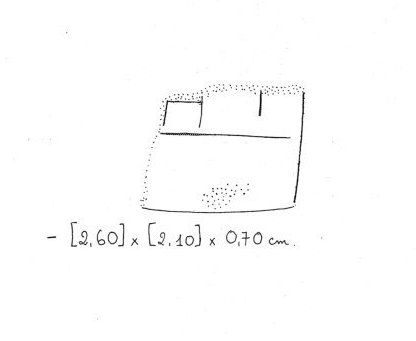 - [2,60] x [2,10] x 0,70 cm.